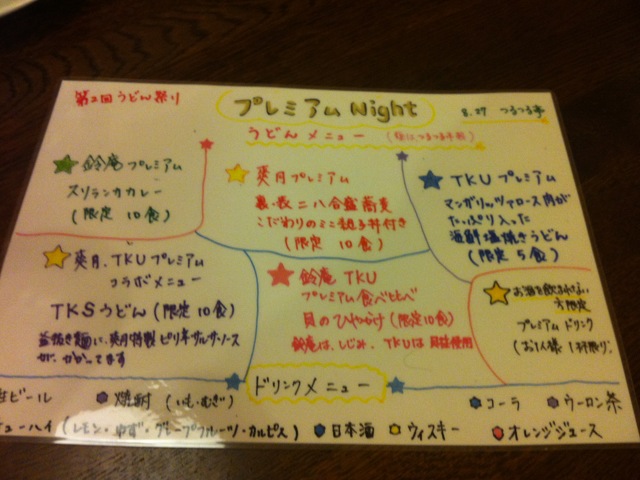 第2回うどん祭り
プレミアムNight
8.27 つるつる亭
うどんメニュー
鈴庵プレミアム
スリランカカレー
(限定 10食)
爽月プレミアム
裏・表二八合盛蕎麦
こだわりのミニ親子丼付き
(限定 10食)
TKUプレミアム
マンガリッツァロース肉が
たっぷり入った
海鮮塩焼きうどん
(限定 5食)
爽月、TKUプレミアム
コラボメニュー
TKSうどん(限定10食)
釜抜き麺に、爽月特製ピリ辛サルサソース
がかかってます
鈴庵 TKU
プレミアム食べ比べ
貝のひやかけ(限定10食)
鈴庵は、しじみ、TKUは貝柱使用
お酒を飲まれない
方限定
プレミアムドリンク
(お1人様 1杯限り)
ドリンクメニュー
生ビール
焼酎 (いも・むぎ)
コーラ
ウーロン茶
ューハイ(レモン・ゆず・グレープフルーツ・カルピス)
日本酒
ウィスキー
オレンジジュース